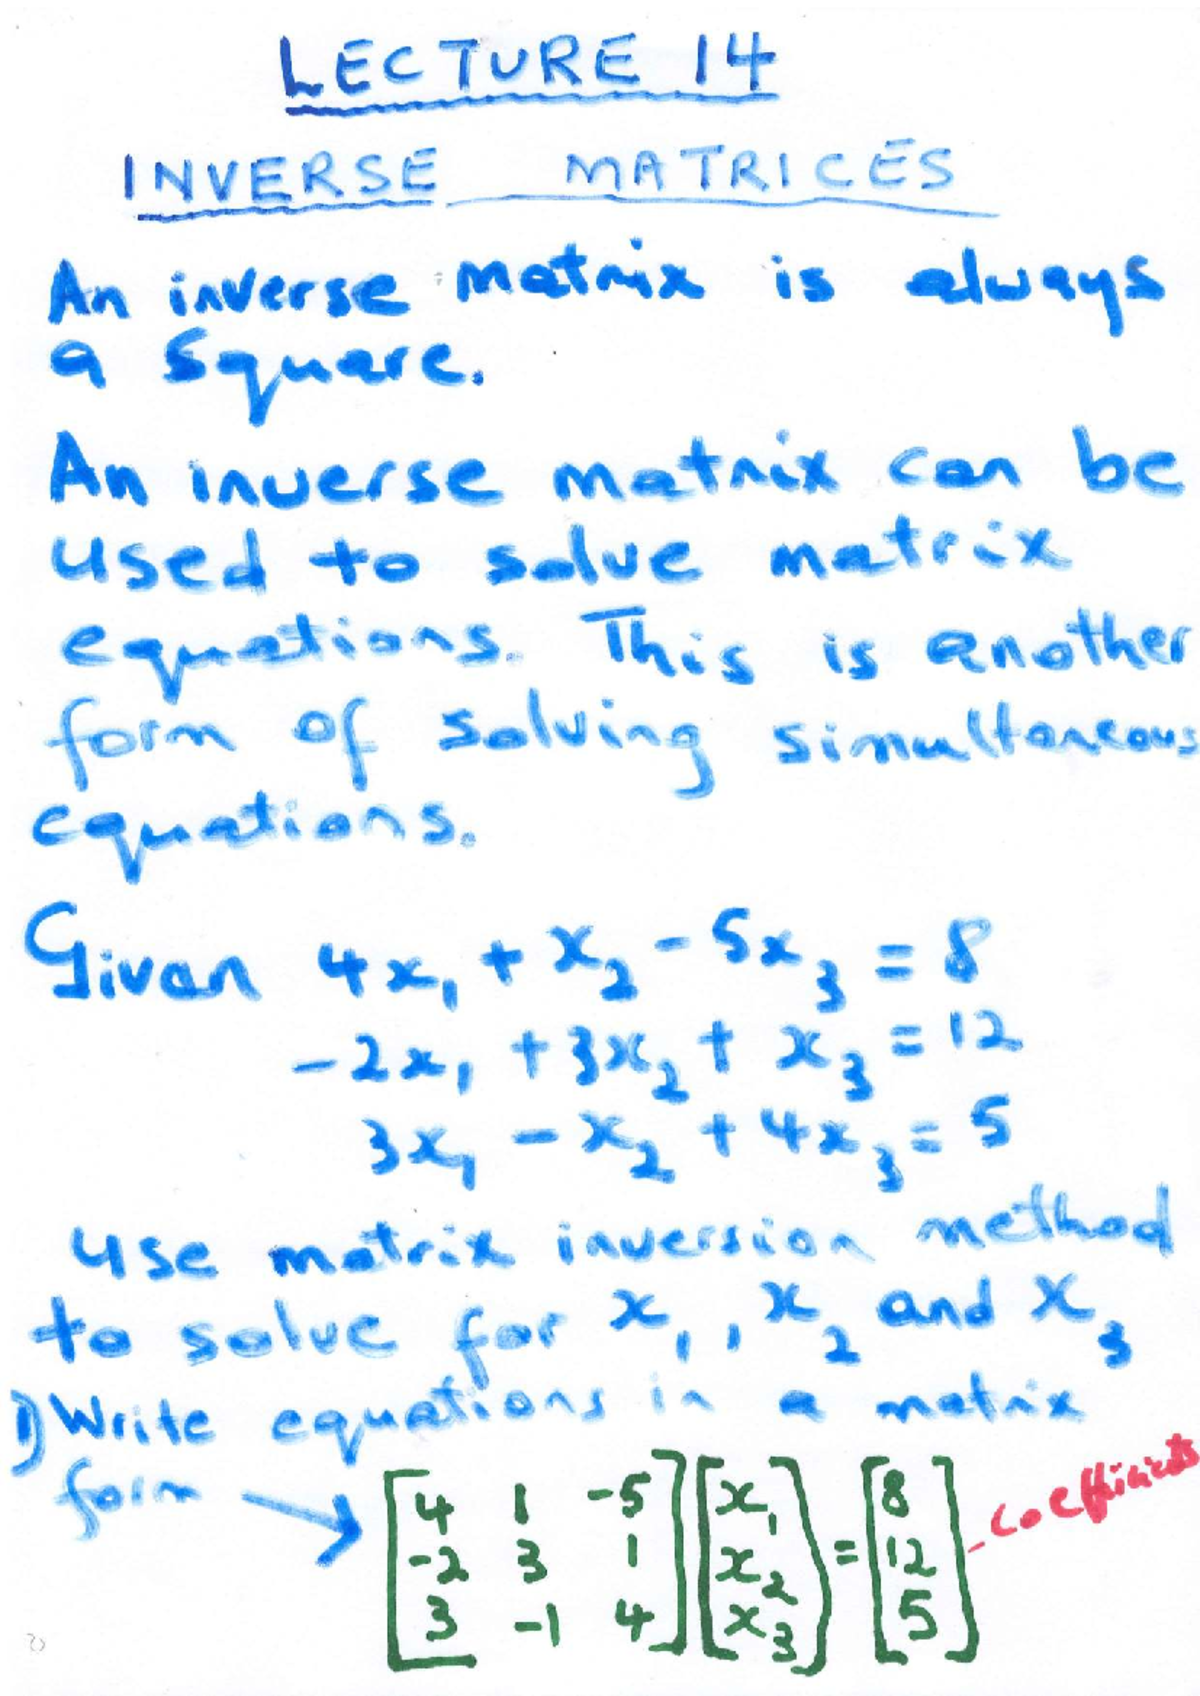 LECTURE 14
INVERSE MATRICES
An inverse matrix is always
a square.
An inverse matrix can be
used to solve matrix
equations. This is another
form of solving simultaneous
equations.
Given 4x₁ + x₂ - 5x₃ = 8
-2x₁ + 3x₂ + x₃ = 12
3x₁ - x₂ + 4x₃ = 5
Use matrix inversion method
to solve for x₁, x₂ and x₃
1) Write equations in a matrix
form → [4 1 -5] [x₁] = [8] - coefficients
[-2 3 1] [x₂] [12]
[3 -1 4] [x₃] [5]